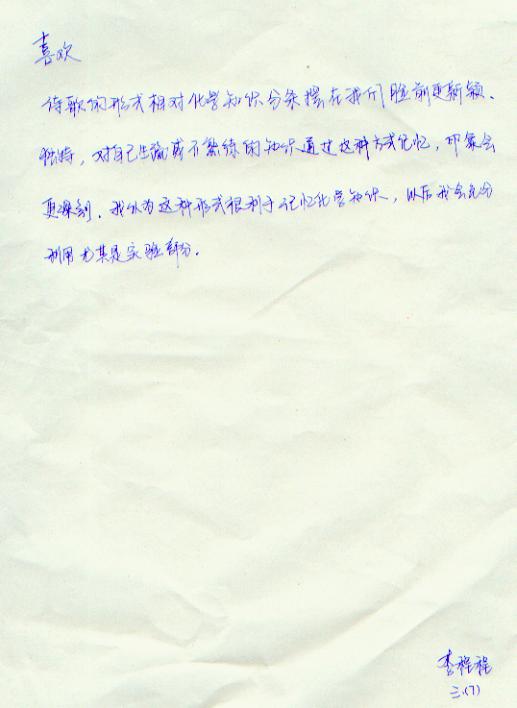 喜欢
诗歌的形式相对化学知识分条摆在我们脸前更新颖、
独特，对自己生疏或不熟练的知识通过这种方式记忆，印象会
更深刻．我认为这种形式很利于记忆化学知识，以后我会充分
利用尤其是实验部分．
李程程
三.(7)